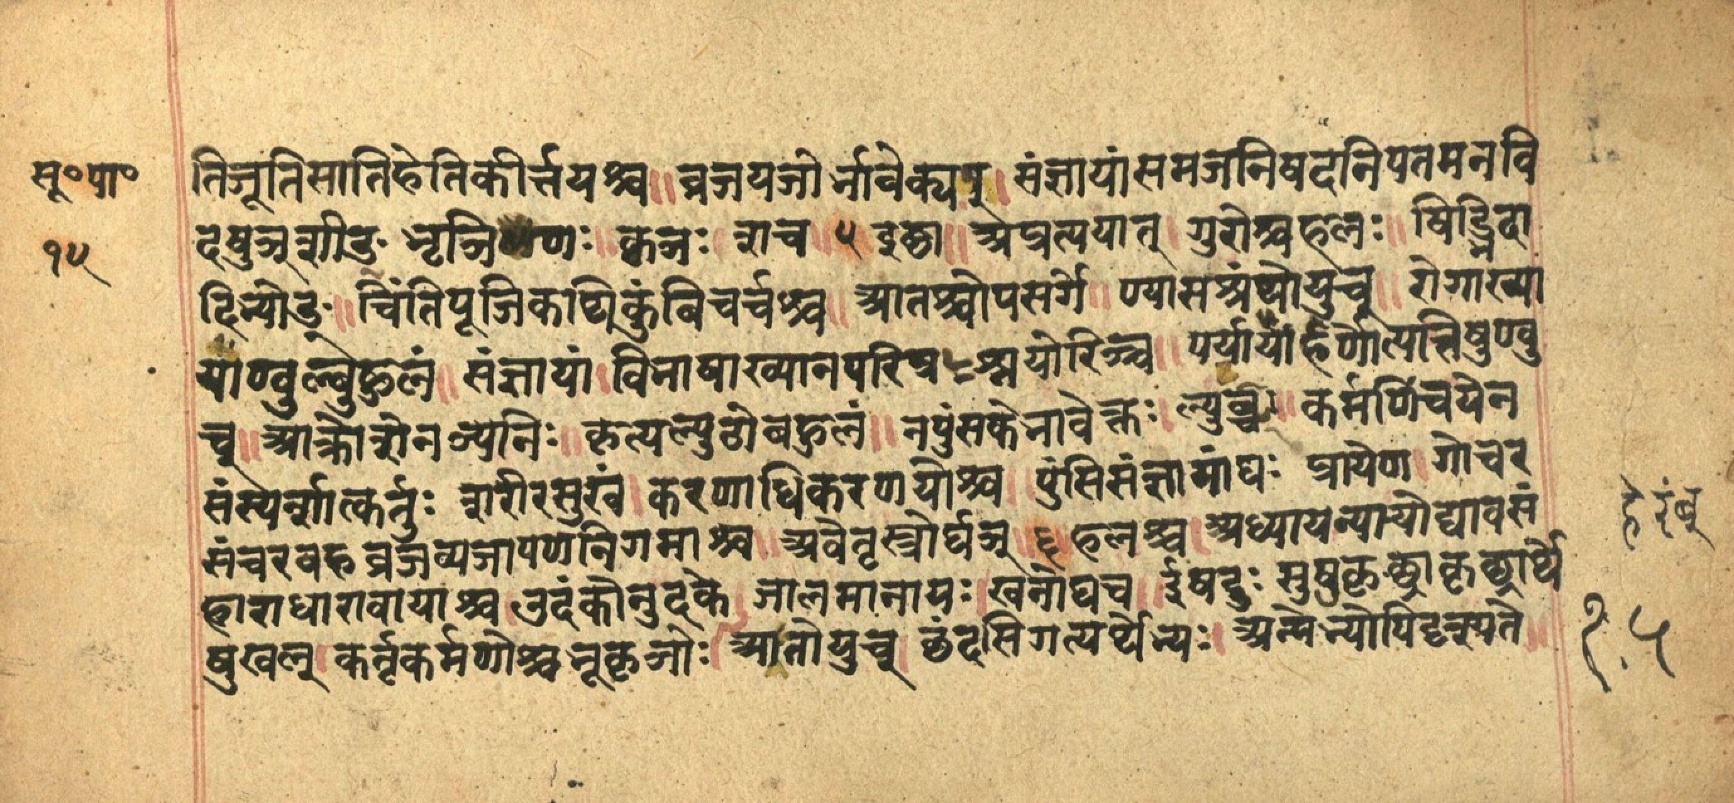 सू॰पा॰
१५
तिजूतिसातिहेतिकीर्त्तयश्च॥ व्रजयजोर्भावेक्यप्॥ संज्ञायांसमजनिषदनिपतमनवि
दषुञ्शीङ् भृञिणः॥ कृञः शच॥ ५ इच्छा॥ अप्रत्ययात्॥ गुरोश्चहलः॥ षिद्भिदा
दिभ्योङ्॥ चिंतिपूजिकथिकुंबिचर्चश्च॥ आतश्चोपसर्गे॥ ण्यासश्रंथोयुच्॥ रोगाख्या
यांण्वुल्बहुलं॥ संज्ञायां॥ विभाषाख्यानपरिप्रश्नयोरिञ्च॥ पर्यायार्हर्णोत्पत्तिषुण्वु
च्॥ आक्रोशेनञ्यनिः॥ कृत्यल्युटोबहुलं॥ नपुंसकेभावेक्तः ल्युट्च॥ कर्मणिचयेन
संस्पर्शात्कर्तुः शरीरसुखं॥ करणाधिकरणयोश्च॥ पुंसिसंज्ञायांघः प्रायेण॥ गोचर
संचरवहव्रजव्यजापणनिगमाश्च॥ अवेतृस्त्रोर्घञ्॥ ६ हलश्च॥ अध्यायन्यायोद्यावसं
हाराधारावायाश्च॥ उदंकोनुदके॥ जालमानायः॥ खनोघच॥ ईषद्दुः सुषुकृच्छ्राकृच्छ्रार्थे
षुखल्॥ कर्तृकर्मणोश्चभूकृञोः॥ आतोयुच्॥ छंदसिगत्यर्थेभ्यः॥ अन्येभ्योपिदृश्यते॥
हेरंब्
१.५